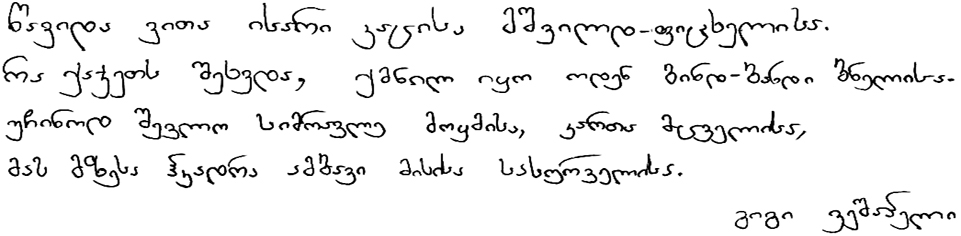 წავიდა ვითა ისარი კაცისა მშვილდ-ფიცხელისა.
რა ქაჯეთს შეხვდა, ქმნილ იყო ოდენ ბინდ-ბანდი ბნელისა.
უჩინოდ შევლო სიმრავლე მოყმისა, კართა მცველისა,
მას მზესა ჰკადრა ამბავი მისისა სასურველისა.
გიგი ვეშაპელი